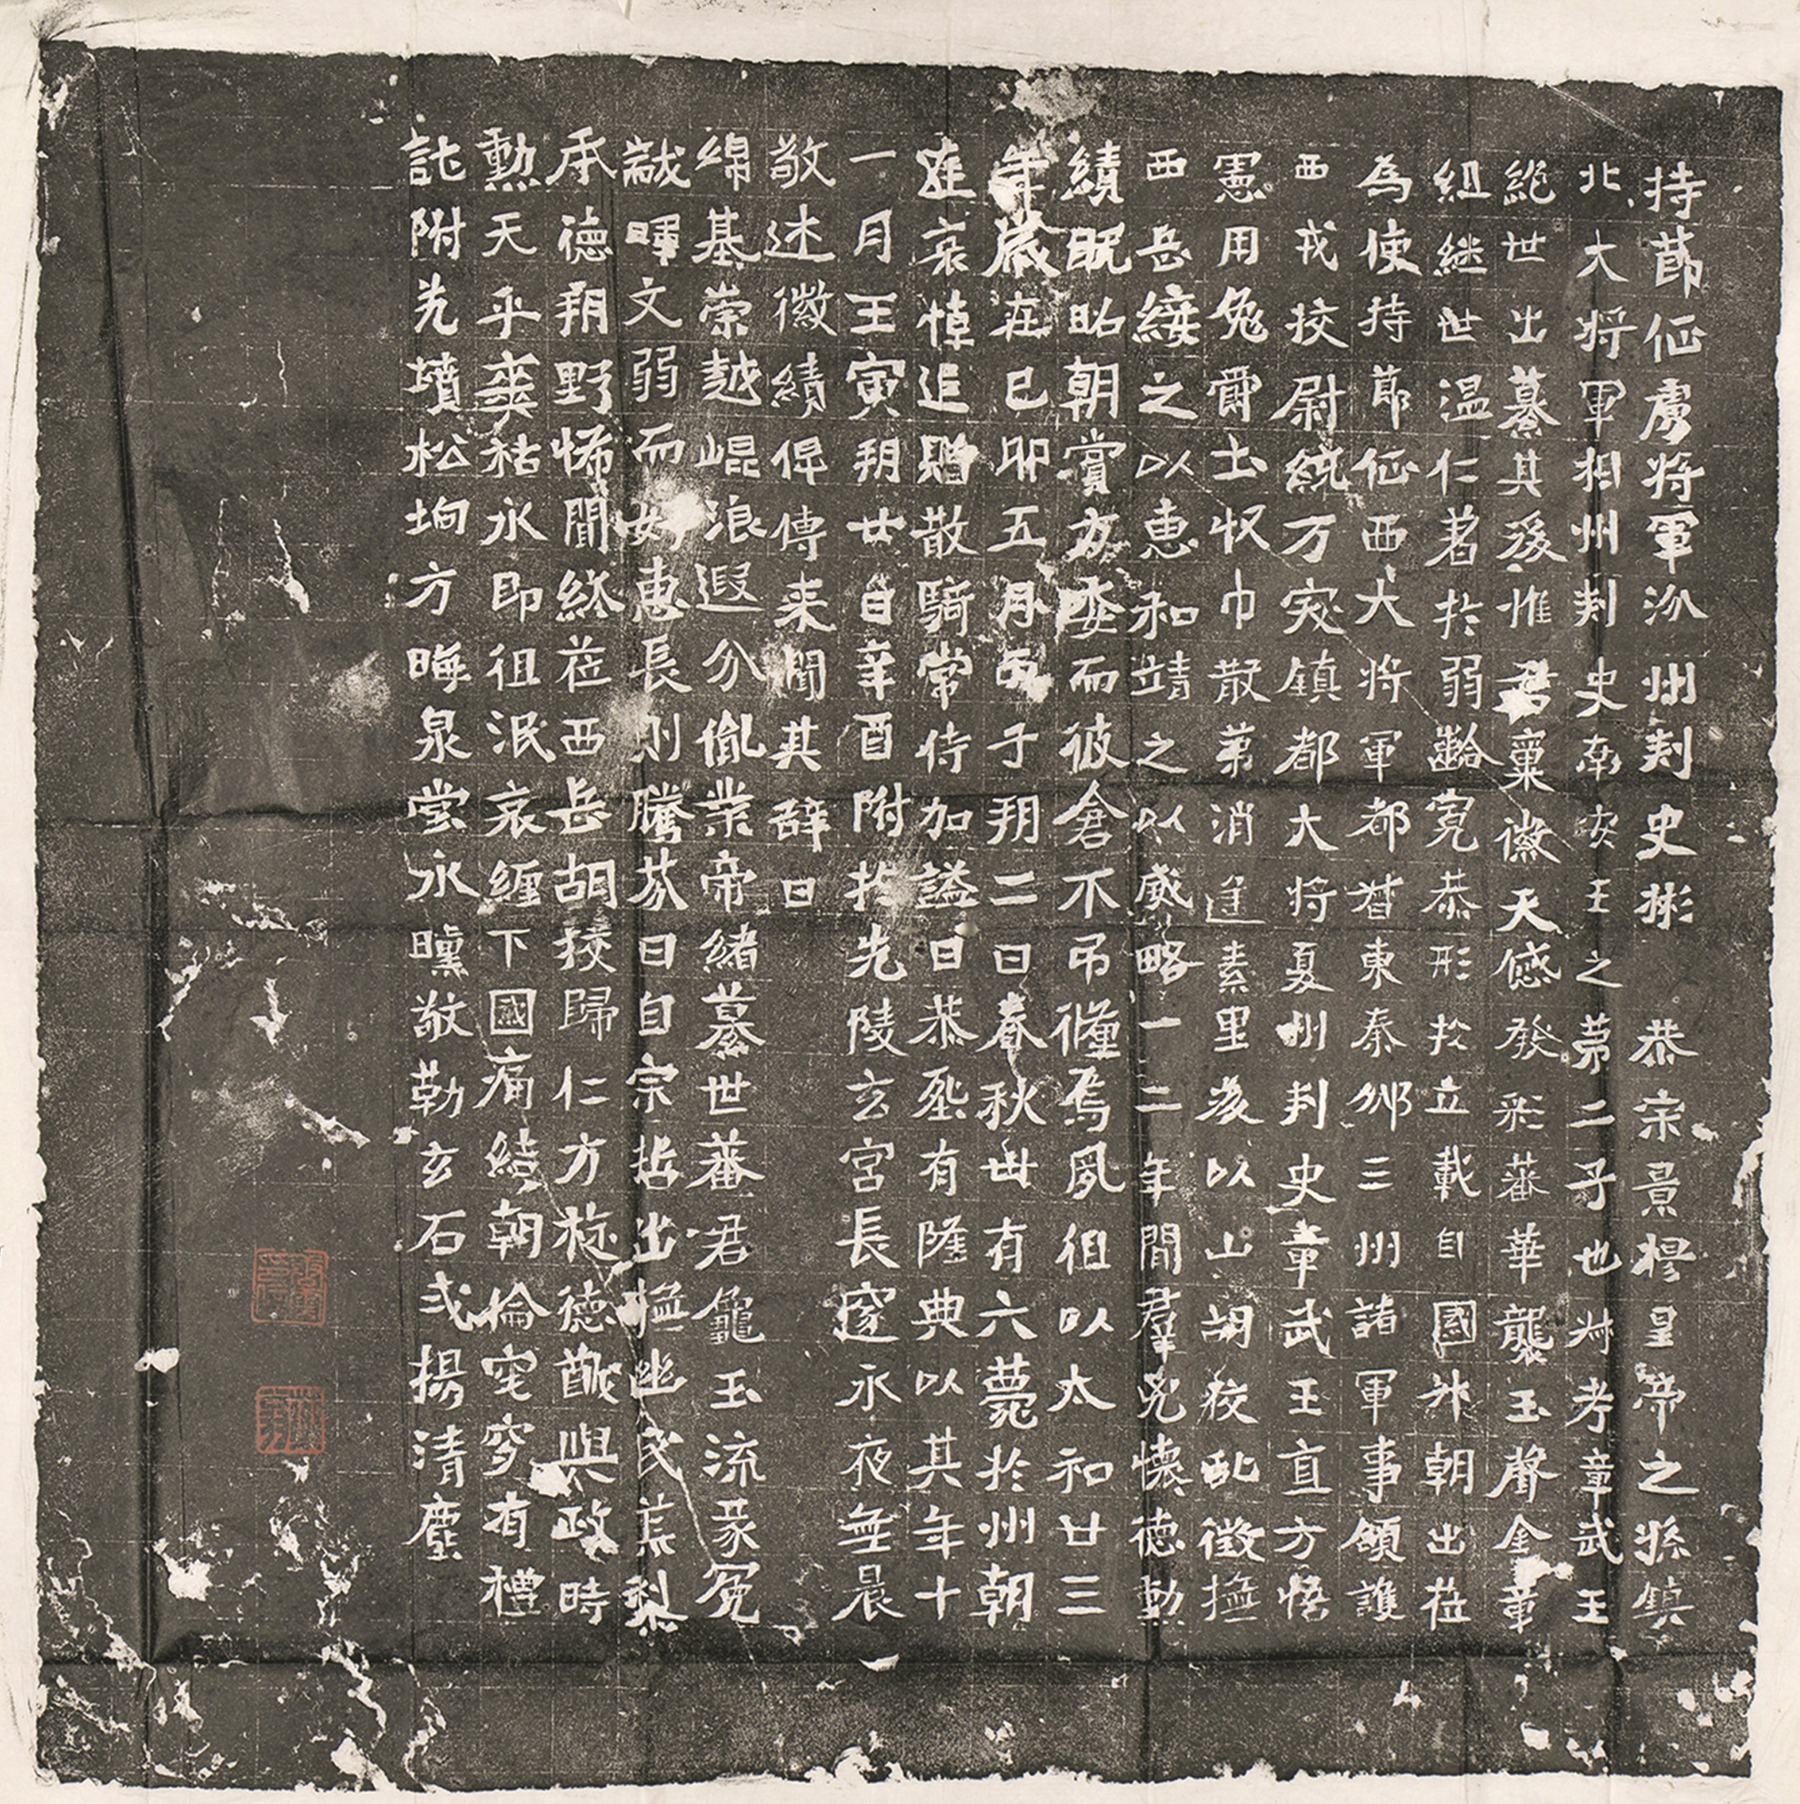 持節征虜將軍汾州刾史彬　恭宗景穆皇帝之孫鎮
北大將軍相州刾史南安王之第二子也叔考章武王
絕世出纂其後惟君稟徽天感發彩蕃華襲玉聲金章
組継世温仁著於弱齡寬恭形於立載自國升朝出莅
為使持節征西大將軍都督東秦邠三州諸軍事領護
西戎挍尉統万突鎮都大將夏州刾史章武王直方悟
憲用免爵土収巾散第消遥素里後以山胡校亂徵撫
西岳綏之以惠和靖之以威略一二年間羣兇懷德勳
績既昭朝賞方委而彼倉不弔殲焉夙徂以太和廿三
年歲在己卯五月丙子朔二日春秋卅有六薨於州朝
廷哀悼追贈散騎常侍加謚曰恭熙有隆典以其年十
一月壬寅朔廿日辛酉附於先陵玄宮長窆永夜無晨
敬述徽績俾傳来聞其辭曰
綿基崇越崐浪遐分胤業帝緒纂世蕃君龜玉流彖冕
黻暉文弱而好惠長則騰芬曰自宗哲出撫幽民羔梨
承德朔野怖聞綏莅西岳胡挍歸仁方旌德猷與政時
勲天乎爽祐永即徂泯哀纏下國痛結朝倫窀穸有禮
託附先墳松埛方晦泉堂永曛敬勒玄石式揚清塵